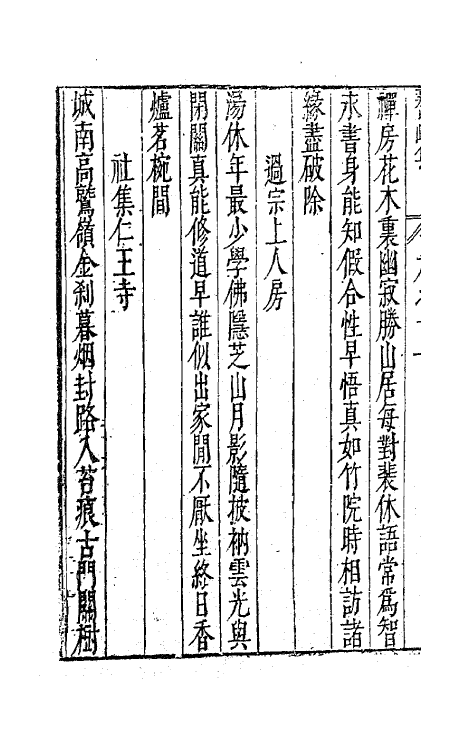 禪房花木裏幽寂勝山居每對裴休語常爲智
永書身能知假合性早悟真如竹院時相訪諸
緣盡破除
過宗上人房
湯休年最少學佛隱芝山月影隨披衲雲光與
閉關真能修道早誰似出家閒不厭坐終日香
爐茗椀間
社集仁王寺
城南高鷲嶺金刹暮烟封路入苔痕古門關樹